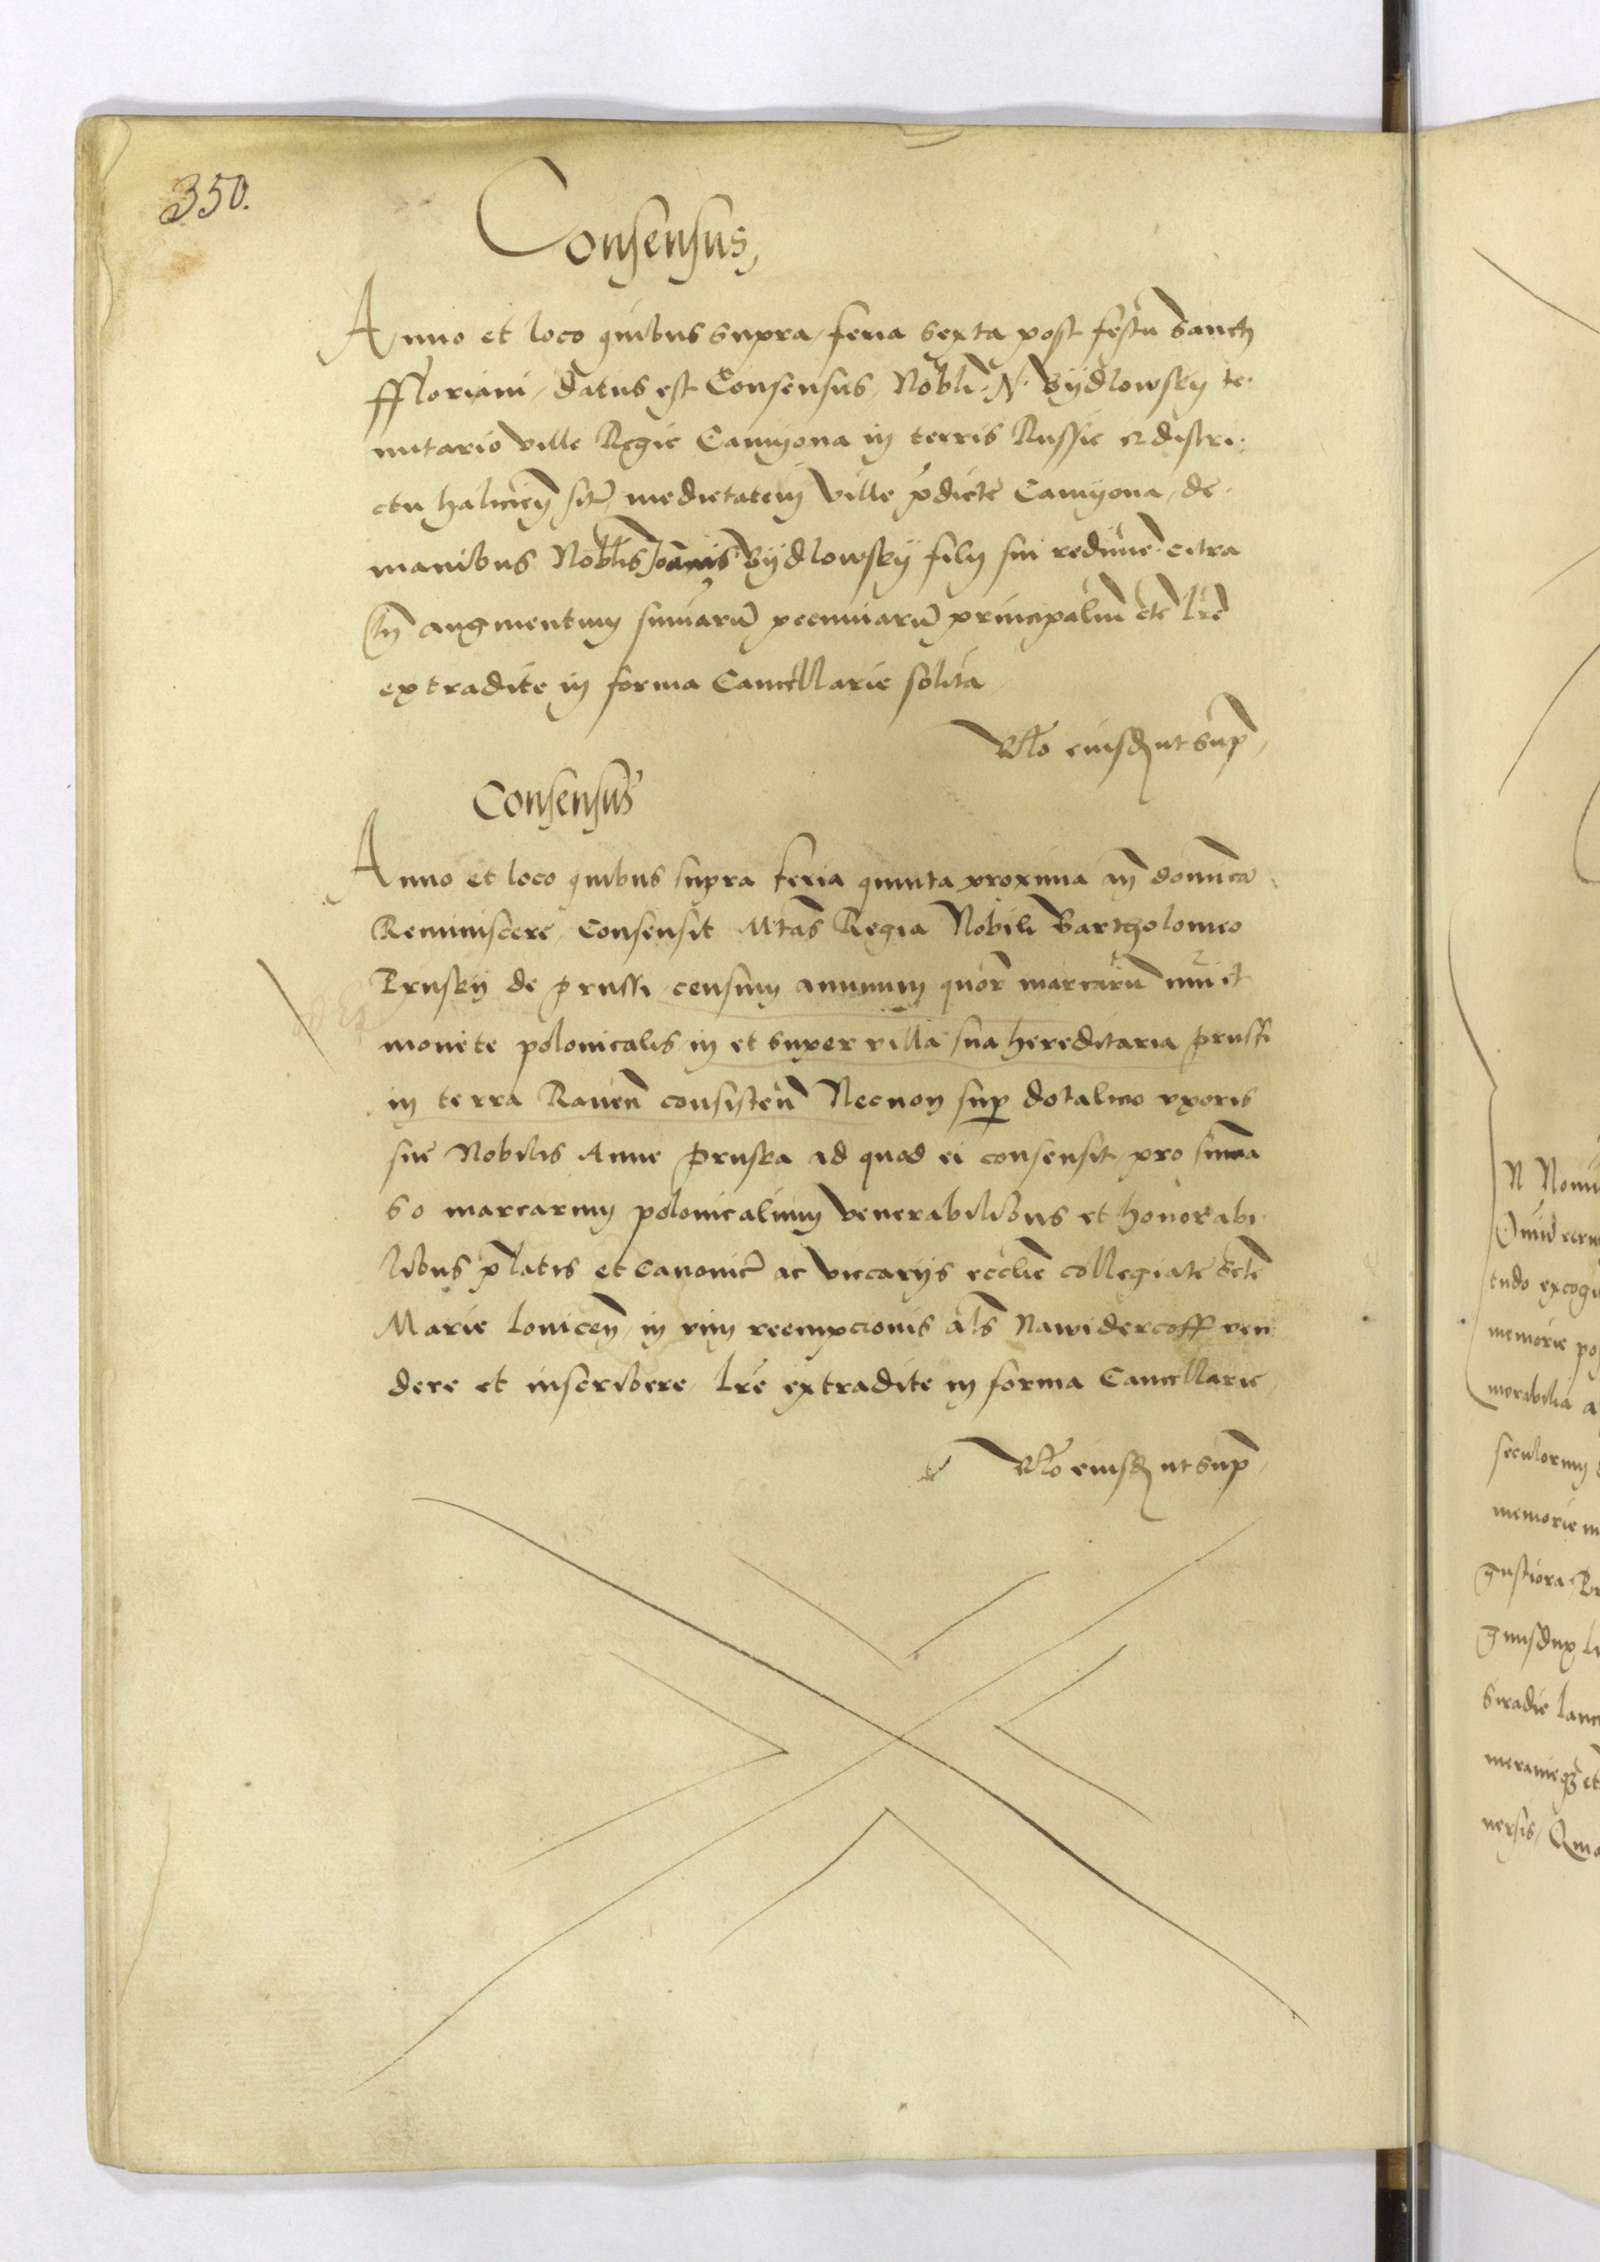 350.
Consensus
Anno et loco quibus supra feria sexta post festū Sancti
fFloriani datus est Consensus Nobli. N. Bydlowsky te-
nutario ville Regie Camyona in terris Russie et distri-
ctu halicieñ site medietatem ville p̄dicte Camyona de
manibus Noblis Joānis Bydlowsky filij sui redime. citra
tn̄ augmentum sum̄arū pecuniarū principaliū etc̄ Lr̄e
extradite in forma Cancellarie solita
Rl̄o eiusd̄ ut sup̄
Consensus
Anno et loco quibus supra feria quinta proxima añ domīca
Reminiscere Consensit Mtas Regia Nobili Bartholomeo
Prusky de Prussi censum annuum quor̄ marcarū
monete polonicalis in et super villa sua hereditaria Prussi
in terra Raueñ consisteñ Necnon sup̄ dotalicio vxoris
sue Nobilis Anne Pruska ad quod ei consensit pro sum̄a
60 marcarum polonicalium venerabilibus et honorabi
libus p̄latis et Canonicis ac vicarijs eccl̄ie collegiate sct̄e
Marie Louiceñ in vim reempcionis al̄s Nawidercoff ven
dere et inscribere Lr̄e extradite in forma Cancellarie
Rl̄o eiusd̄ ut sup̄
N Nomi
tudo excogi
memorie po
morabilia a
seculorum
memorie
gustiora
Siradie Lanci